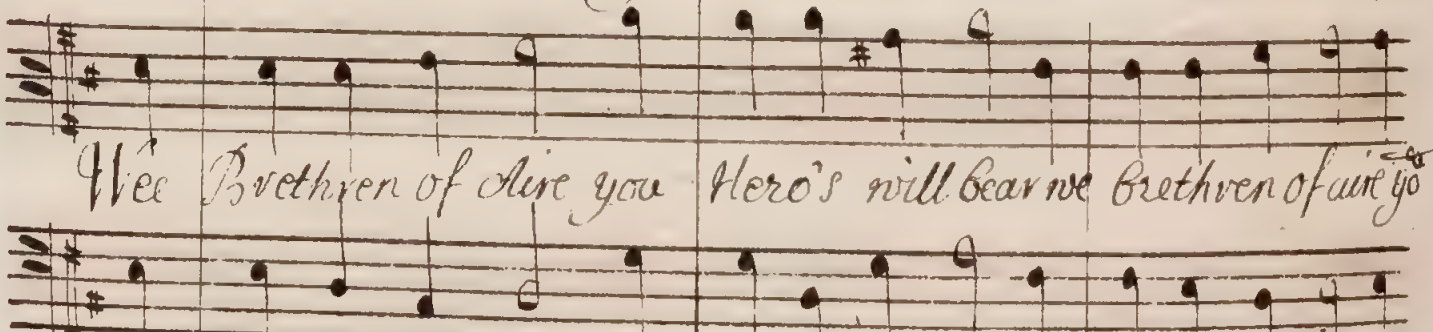 Wee Brethren of Aire you Hero's will bear we brethren of aire yo